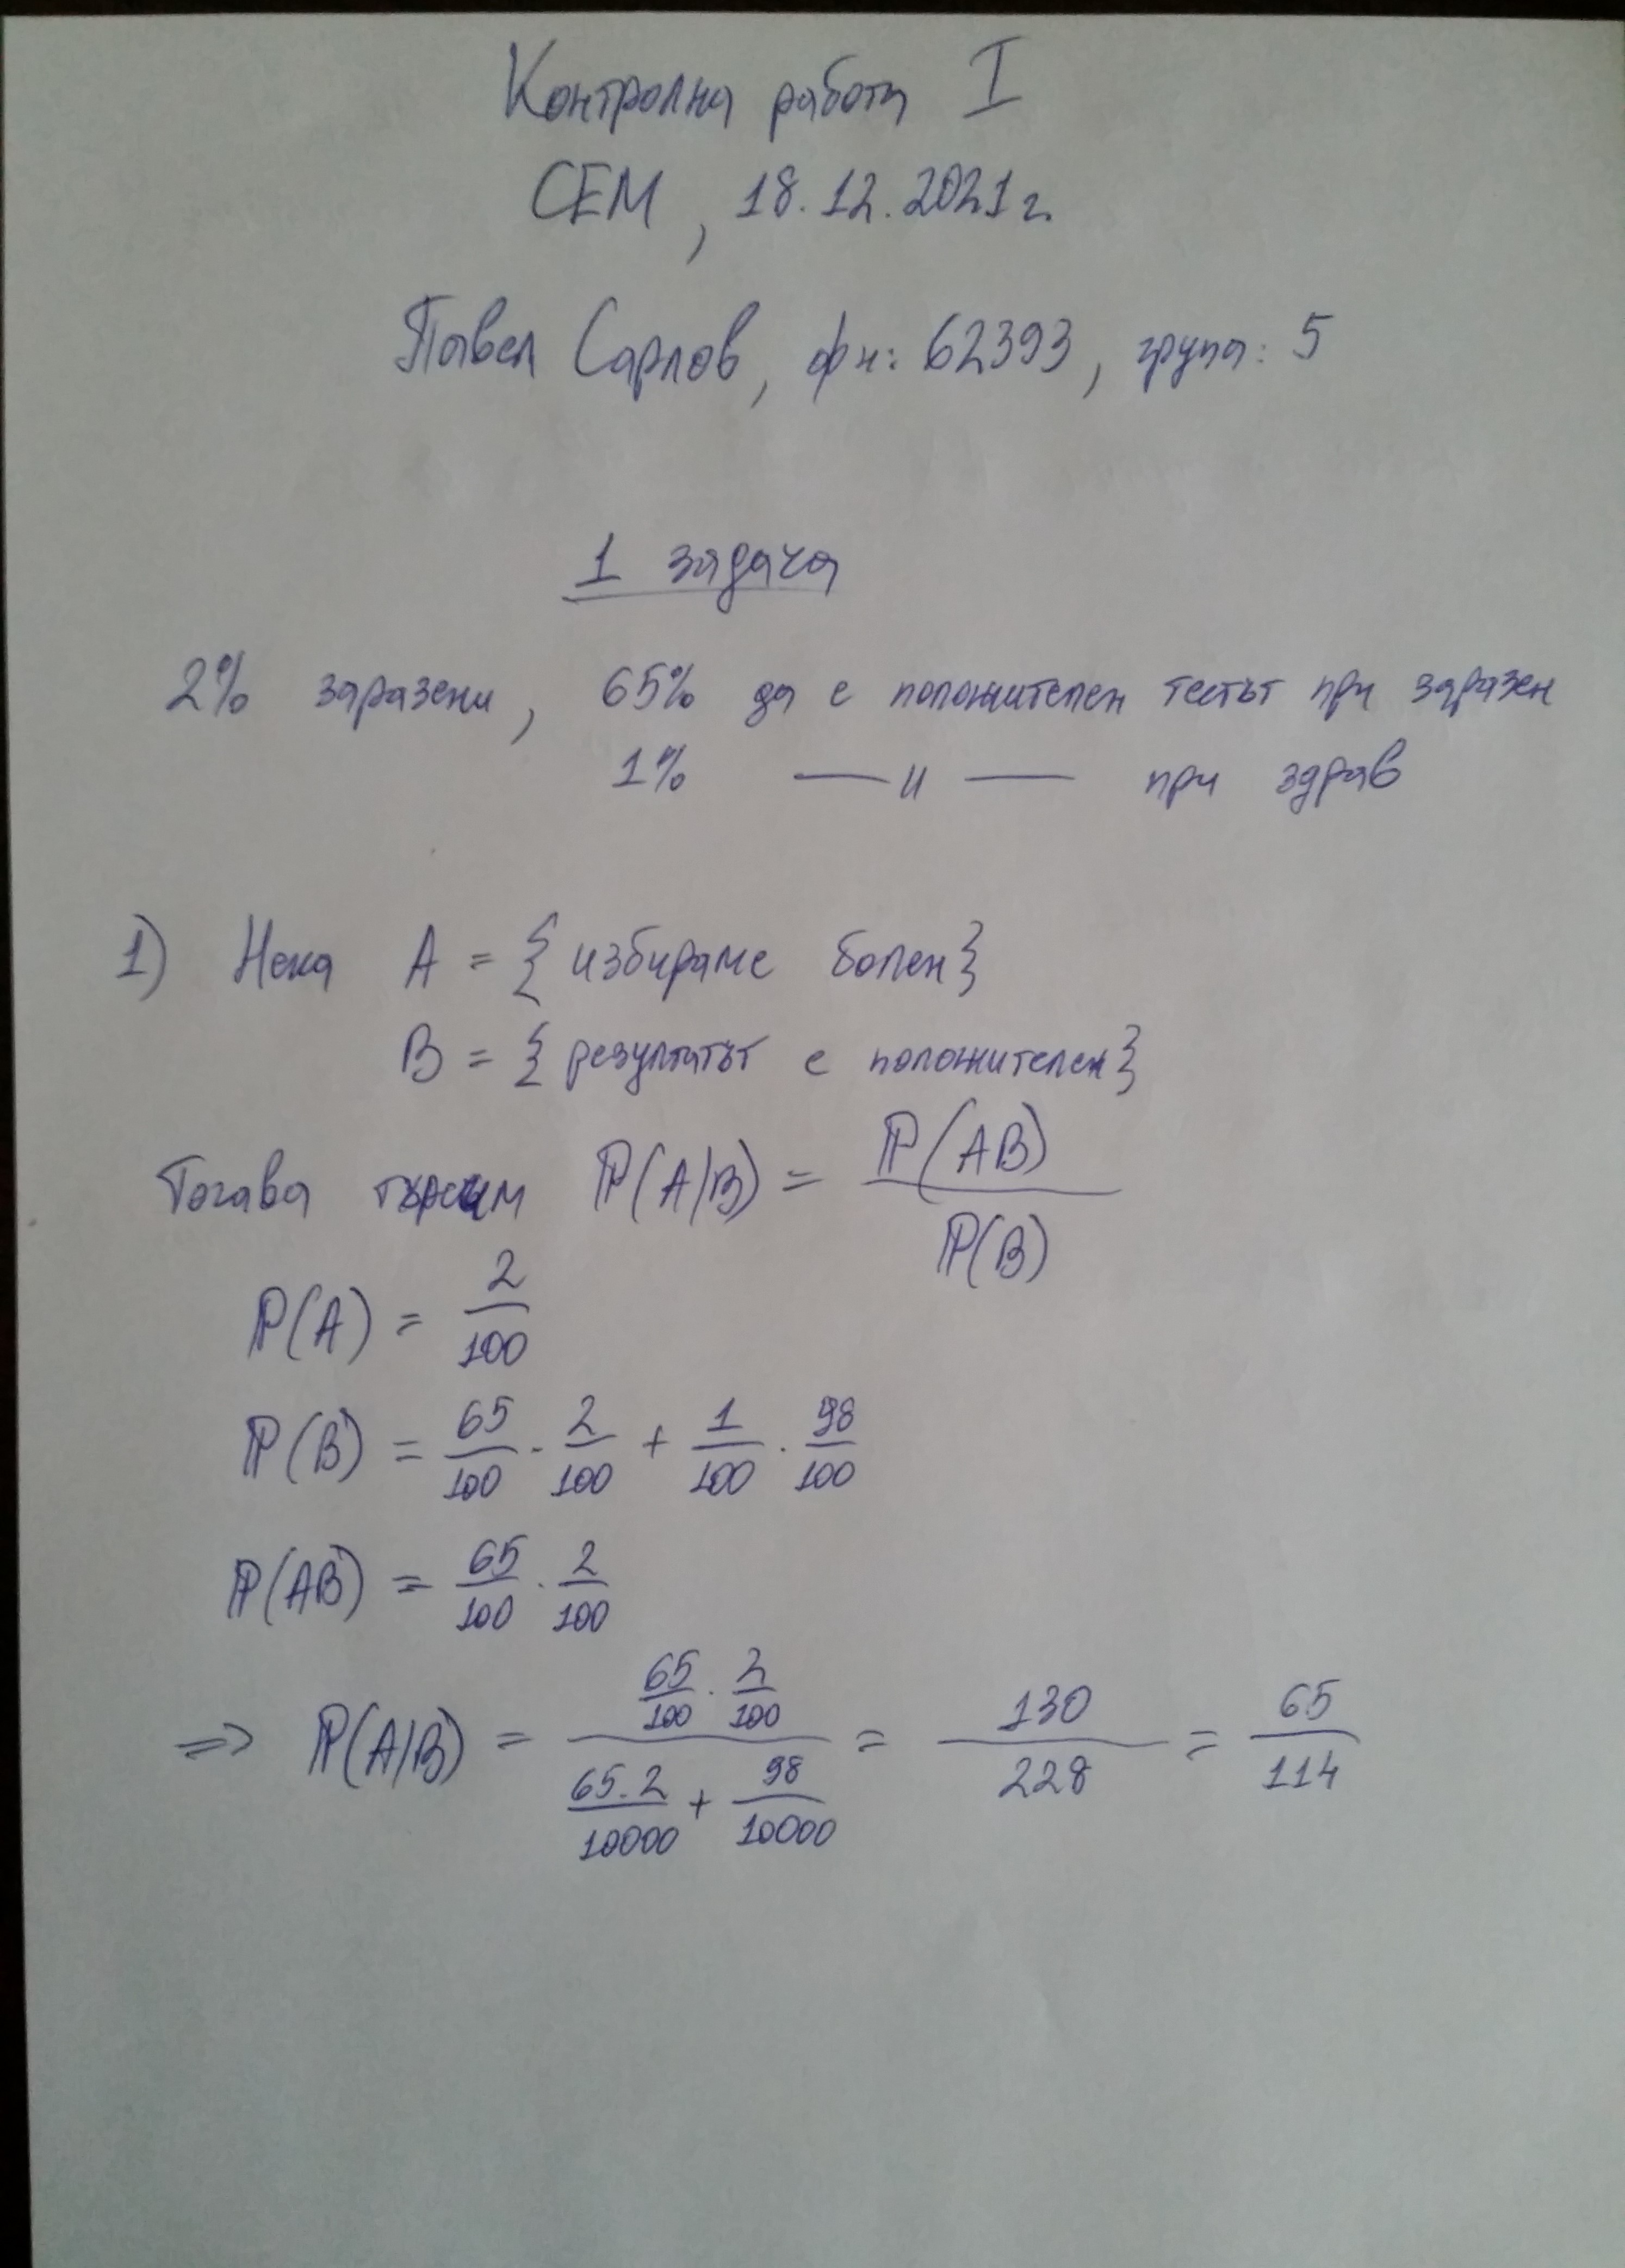 Контролна работа I
СЕМ, 18.12.2021 г.
Павел Сарлов, фн: 62393, група: 5
1 задача
2% заразени, 65% да е положителен тестът при заразен
1% —— 〃 —— при здрав
1) Нека A = { избираме болен}
B = { резултатът е положителен}
Тогава търсим ℙ(A|B) = ℙ(AB) / ℙ(B)
ℙ(A) = 2/100
ℙ(B) = 65/100 · 2/100 + 1/100 · 98/100
ℙ(AB) = 65/100 · 2/100
⇒ ℙ(A|B) = (65/100 · 2/100) / (65.2/10000 + 98/10000) = 130/228 = 65/114